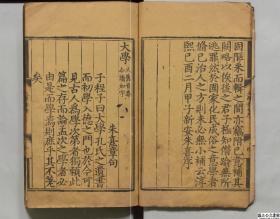 固陋采而輯之間亦竊附己意補其
闕略以俟後之君子極知僭踰無所
逃罪然於國家化民成俗之意學者
脩己治人之方則未必無小補云淳
熙己酉二月甲子新安朱熹序
大學 大舊音泰今讀如字
朱熹章句
子程子曰大學孔氏之遺書
而初學入德之門也於今可
見古人為學次第者獨賴此
篇之存而論孟次之學者必
由是而學焉則庶乎其不差
矣